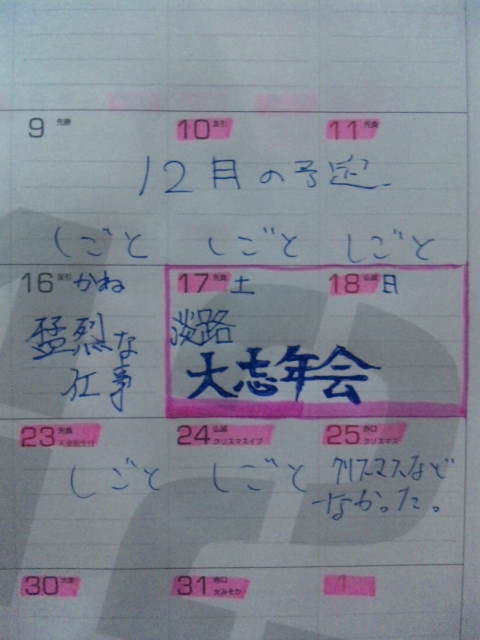 9 先勝 10 友引 11 先負
12月の予定
しごと しごと しごと
16 友引 かね 17 先負 土 18 仏滅 日
猛烈な
仕事
淡路
大志年会
23 先負 天皇誕生日 24 仏滅 クリスマスイブ 25 赤口 クリスマス
しごと しごと クリスマスなど
なかった。
30 大安 31 赤口 大みそか 1